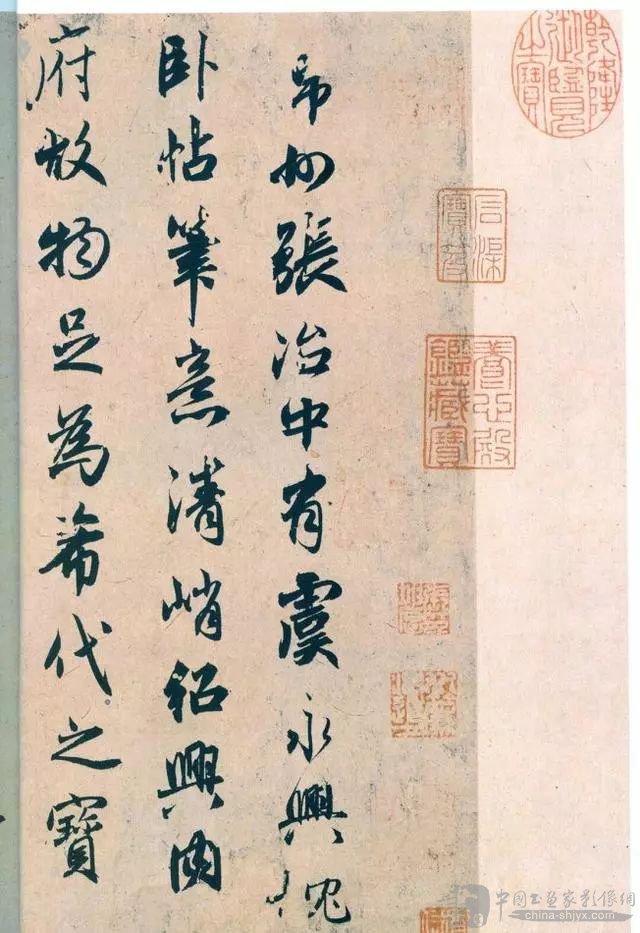 乾隆御覽之寶
石渠寶笈
養心殿鑑藏寶
州張治中有虞永興
卧帖筆意清峭紹興內
府故物足為希代之寶
中國书画家影像網
china-shjyx.com